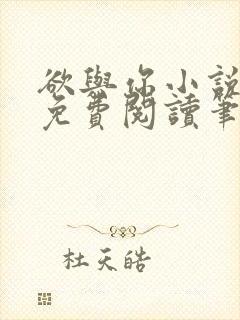 欲與你小說
免費閱讀筆
杜天皓